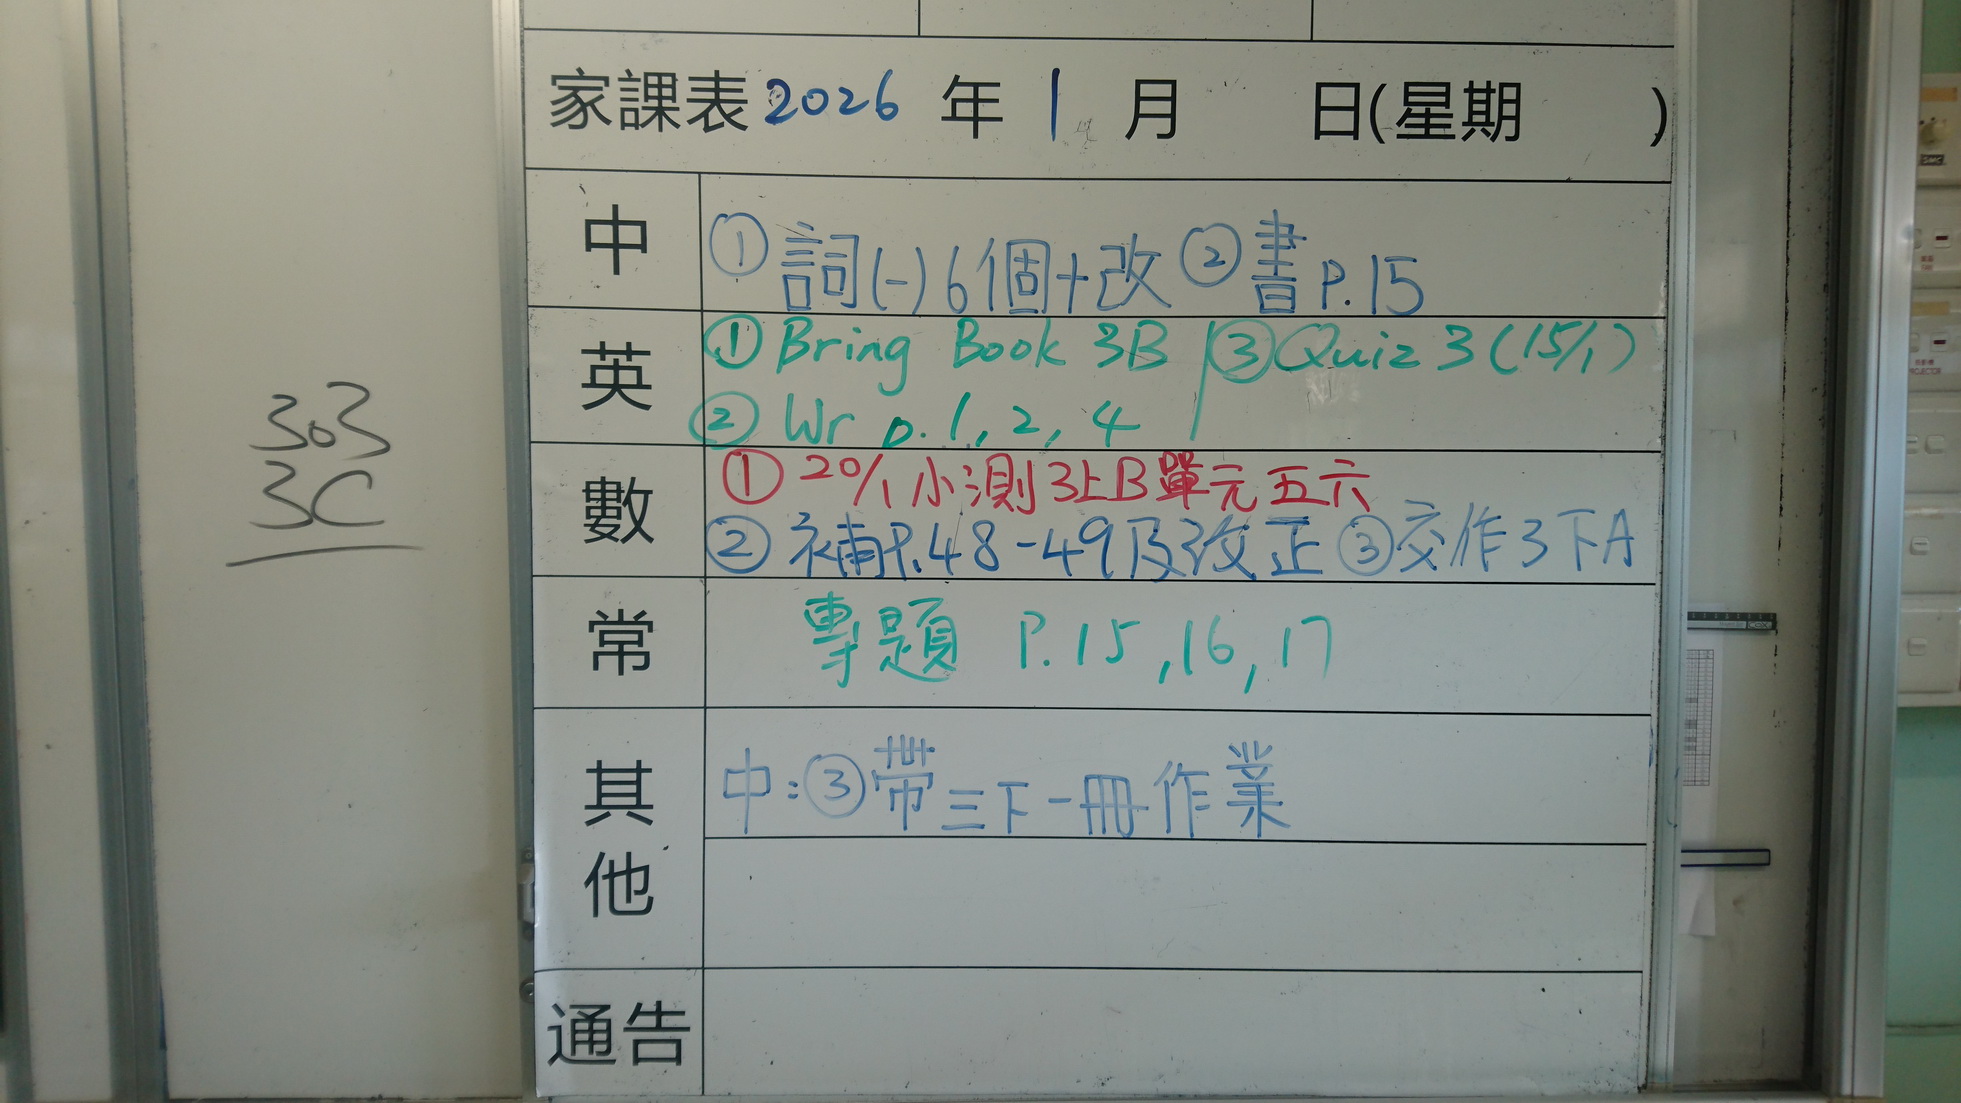 303
3C
家課表2026年1月 日(星期 )
中
①詞(一)6個+改②書P.15
英
①Bring Book 3B ③Quiz 3(15/1)
②Wr p.1, 2, 4
數
①20/1小測3上B單元五六
②補P.48-49及改正③交作3下A
常
專題 P.15,16,17
其他
中:③帶三下一冊作業
通告